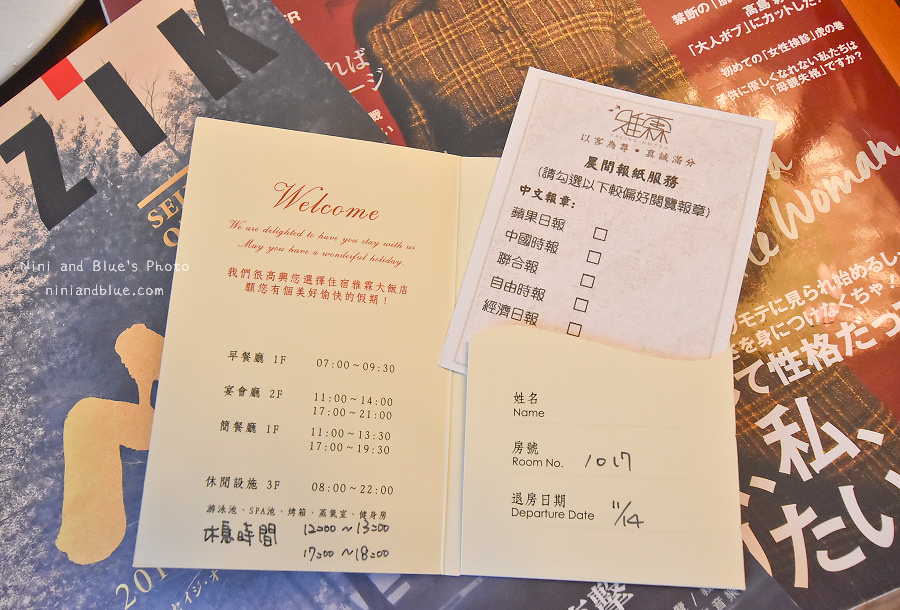 ZIK
SEI
O
Nini and Blue's Photo
niniandblue.com
201
セイジ・オ
Welcome
We are delighted to have you stay with us
May you have a wonderful holiday.
我們很高興您選擇住宿雅霖大飯店
願您有個美好愉快的假期！
早餐廳 1F 07:00～09:30
宴會廳 2F 11:00～14:00
17:00～21:00
簡餐廳 1F 11:00～13:30
17:00～19:30
休閒設施 3F 08:00～22:00
游泳池、SPA池、烤箱、蒸氣室、健身房
休息時間 12:00～13:00
17:00～18:00
雅霖
以客為尊・真誠滿分
晨間報紙服務
(請勾選以下較偏好閱覽報章)
中文報章:
蘋果日報 □
中國時報 □
聯合報 □
自由時報 □
經濟日報 □
姓名
Name
房號
Room No. 1017
退房日期
Departure Date 11/14
ER
れば
ージ
禁断の「肌
高島
「大人ボブ」にカットした
初めての「女性検診」虎の巻
子供に優しくなれない私たちは
「母親失格」ですか？
Woman
モテに見られ始めるし
を身につけなくちゃ
て性格だっ
、私、
りたい
撃